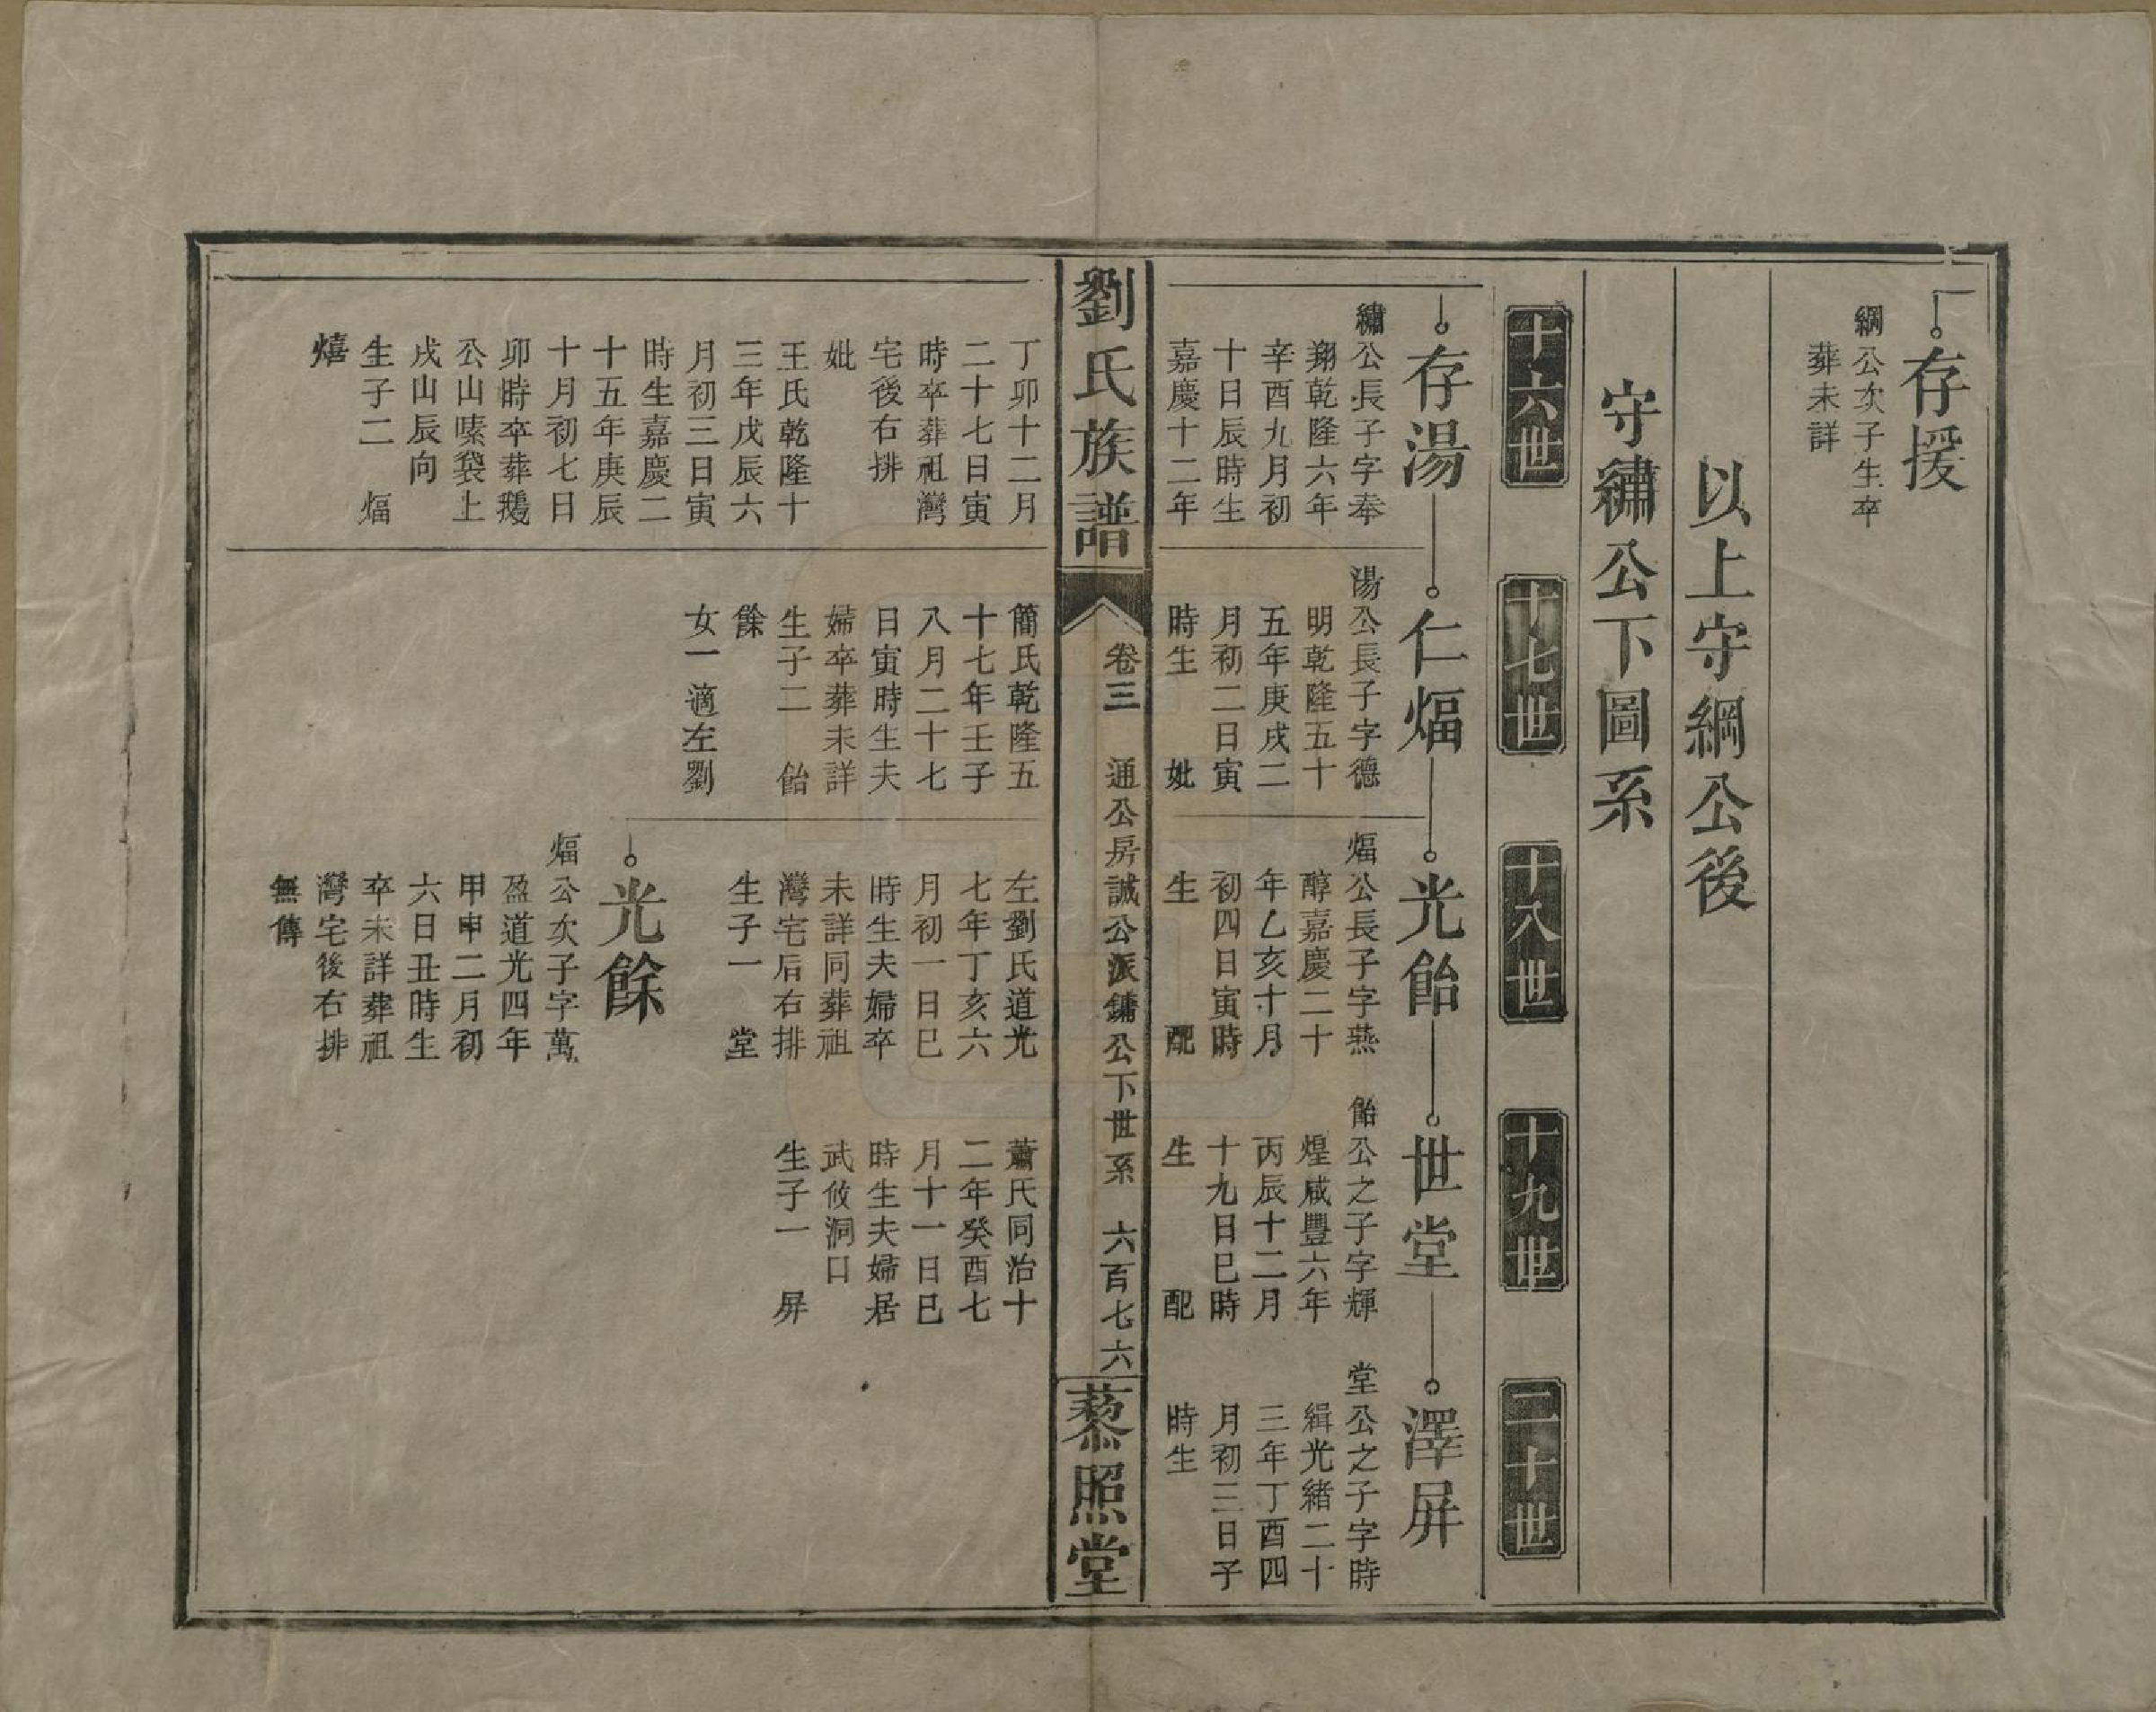 存援
綱公次子生卒
葬未詳
以上守綱公後
守繡公下圖系
十六世
十七世
十八世
十九世
二十世
存湯
繡公長子字奉
翔乾隆六年
辛酉九月初
十日辰時生
嘉慶十二年
仁煏
湯公長子字德
明乾隆五十
五年庚戌二
月初二日寅
時生 妣
光飴
煏公長子字燕
醇嘉慶二十
年乙亥十月
初四日寅時
生 配
世堂
飴公之子字輝
煌咸豐六年
丙辰十二月
十九日巳時
生 配
澤屏
堂公之子字時
緝光緒二十
三年丁酉四
月初三日子
時生
劉氏族譜
卷三 通公房誠公派鏞公下世系 六百七六
藜照堂
丁卯十二月
二十七日寅
時卒葬祖灣
宅後右排
妣
王氏乾隆十
三年戊辰六
月初三日寅
時生嘉慶二
十五年庚辰
十月初七日
卯時卒葬鵝
公山嗉袋上
戌山辰向
生子二 煏
熺
簡氏乾隆五
十七年壬子
八月二十七
日寅時生夫
婦卒葬未詳
生子二 飴
餘
女一適左劉
左劉氏道光
七年丁亥六
月初一日巳
時生夫婦卒
未詳同葬祖
灣宅后右排
生子一 堂
光餘
煏公次子字萬
盈道光四年
甲申二月初
六日丑時生
卒未詳葬祖
灣宅後右排
無傳
蕭氏同治十
二年癸酉七
月十一日巳
時生夫婦居
武攸洞口
生子一 屏